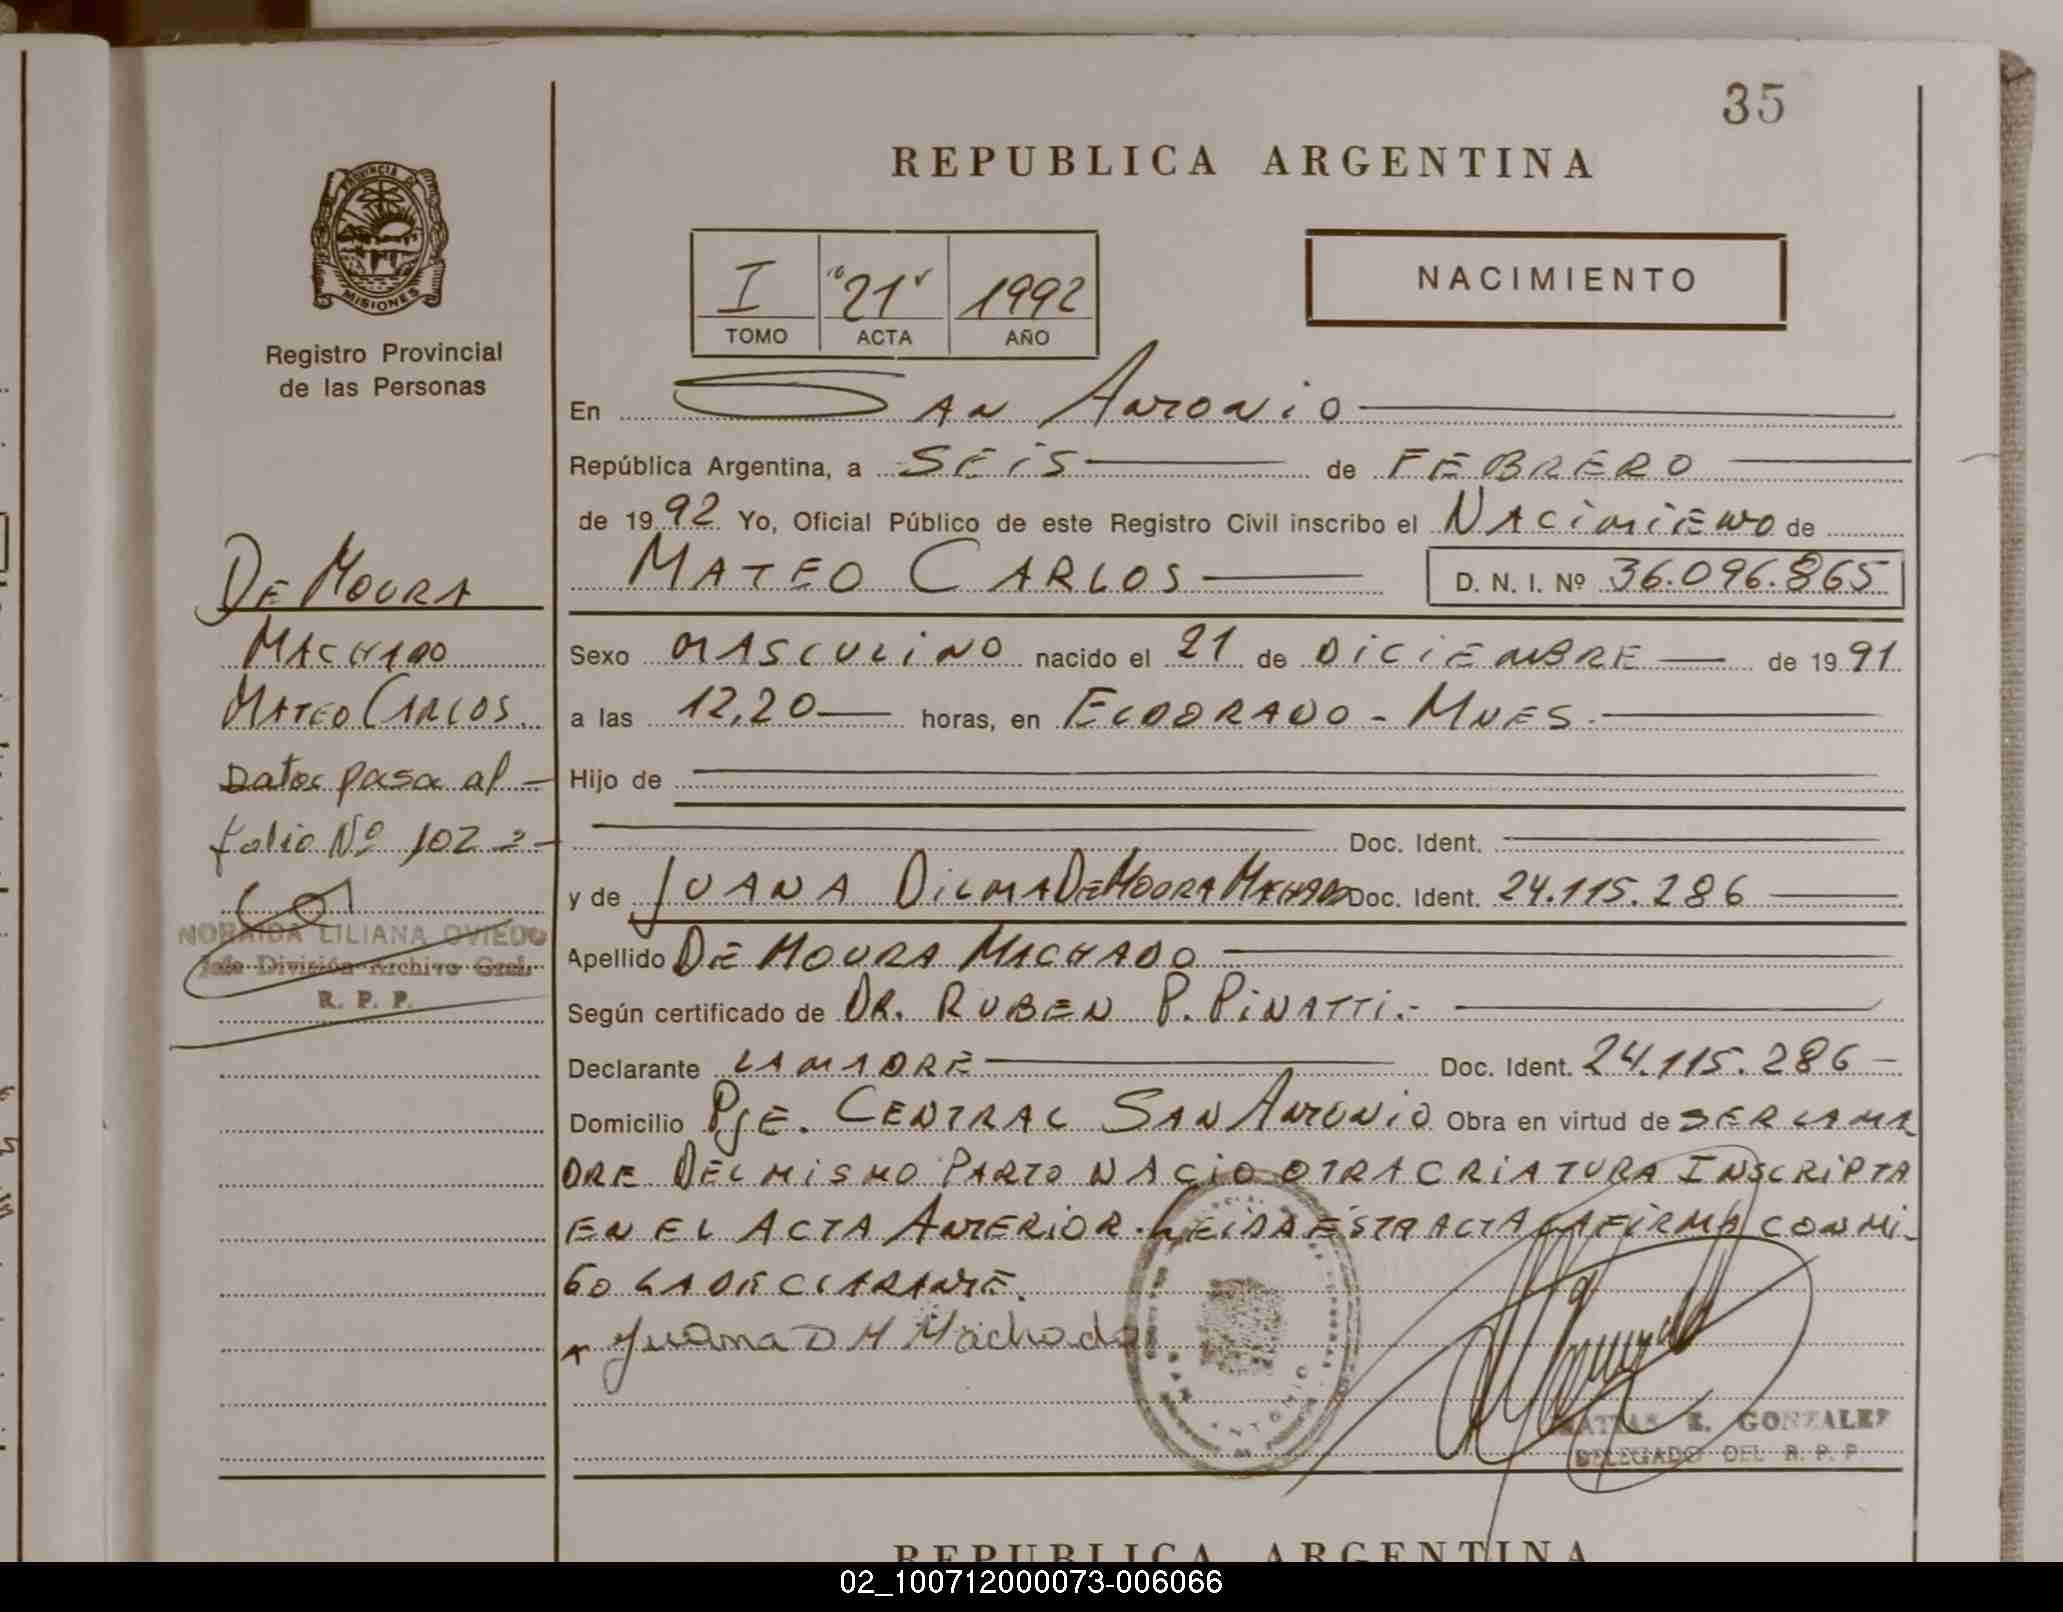 35
REPUBLICA ARGENTINA
PROVINCIA DE
MISIONES
Registro Provincial
de las Personas
I "21" 1992
TOMO ACTA AÑO
NACIMIENTO
En SAN ANTONIO
República Argentina, a SEIS de FEBRERO
de 1992 Yo, Oficial Público de este Registro Civil inscribo el NACIMIENTO de
MATEO CARLOS D. N. I. Nº 36.096.865
Sexo MASCULINO nacido el 21 de DICIEMBRE de 1991
a las 12,20 horas, en ELDORADO - MNES.
Hijo de
Doc. Ident.
y de JUANA DILMA DE MOURA MACHADO Doc. Ident. 24.115.286
Apellido DE MOURA MACHADO
Según certificado de DR. RUBEN P. PINATTI.-
Declarante LA MADRE Doc. Ident. 24.115.286
Domicilio PJE. CENTRAL SAN ANTONIO Obra en virtud de SER LA MA
DRE DEL MISMO PARTO NACIO OTRA CRIATURA INSCRIPTA
EN EL ACTA ANTERIOR. LEIDA ESTA ACTA LA FIRMA CONMI-
GO LA DECLARANTE.
Juana D M Machado
SAN ANTONIO
MATIAS E. GONZALEZ
DELEGADO DEL R. P. P.
DE MOURA
MACHADO
MATEO CARLOS
Datos pasa al
folio Nº 102
NORAIDA LILIANA OVIEDO
Jefe División Archivo Gral.
R. P. P.
REPUBLICA ARGENTINA
02_100712000073-006066